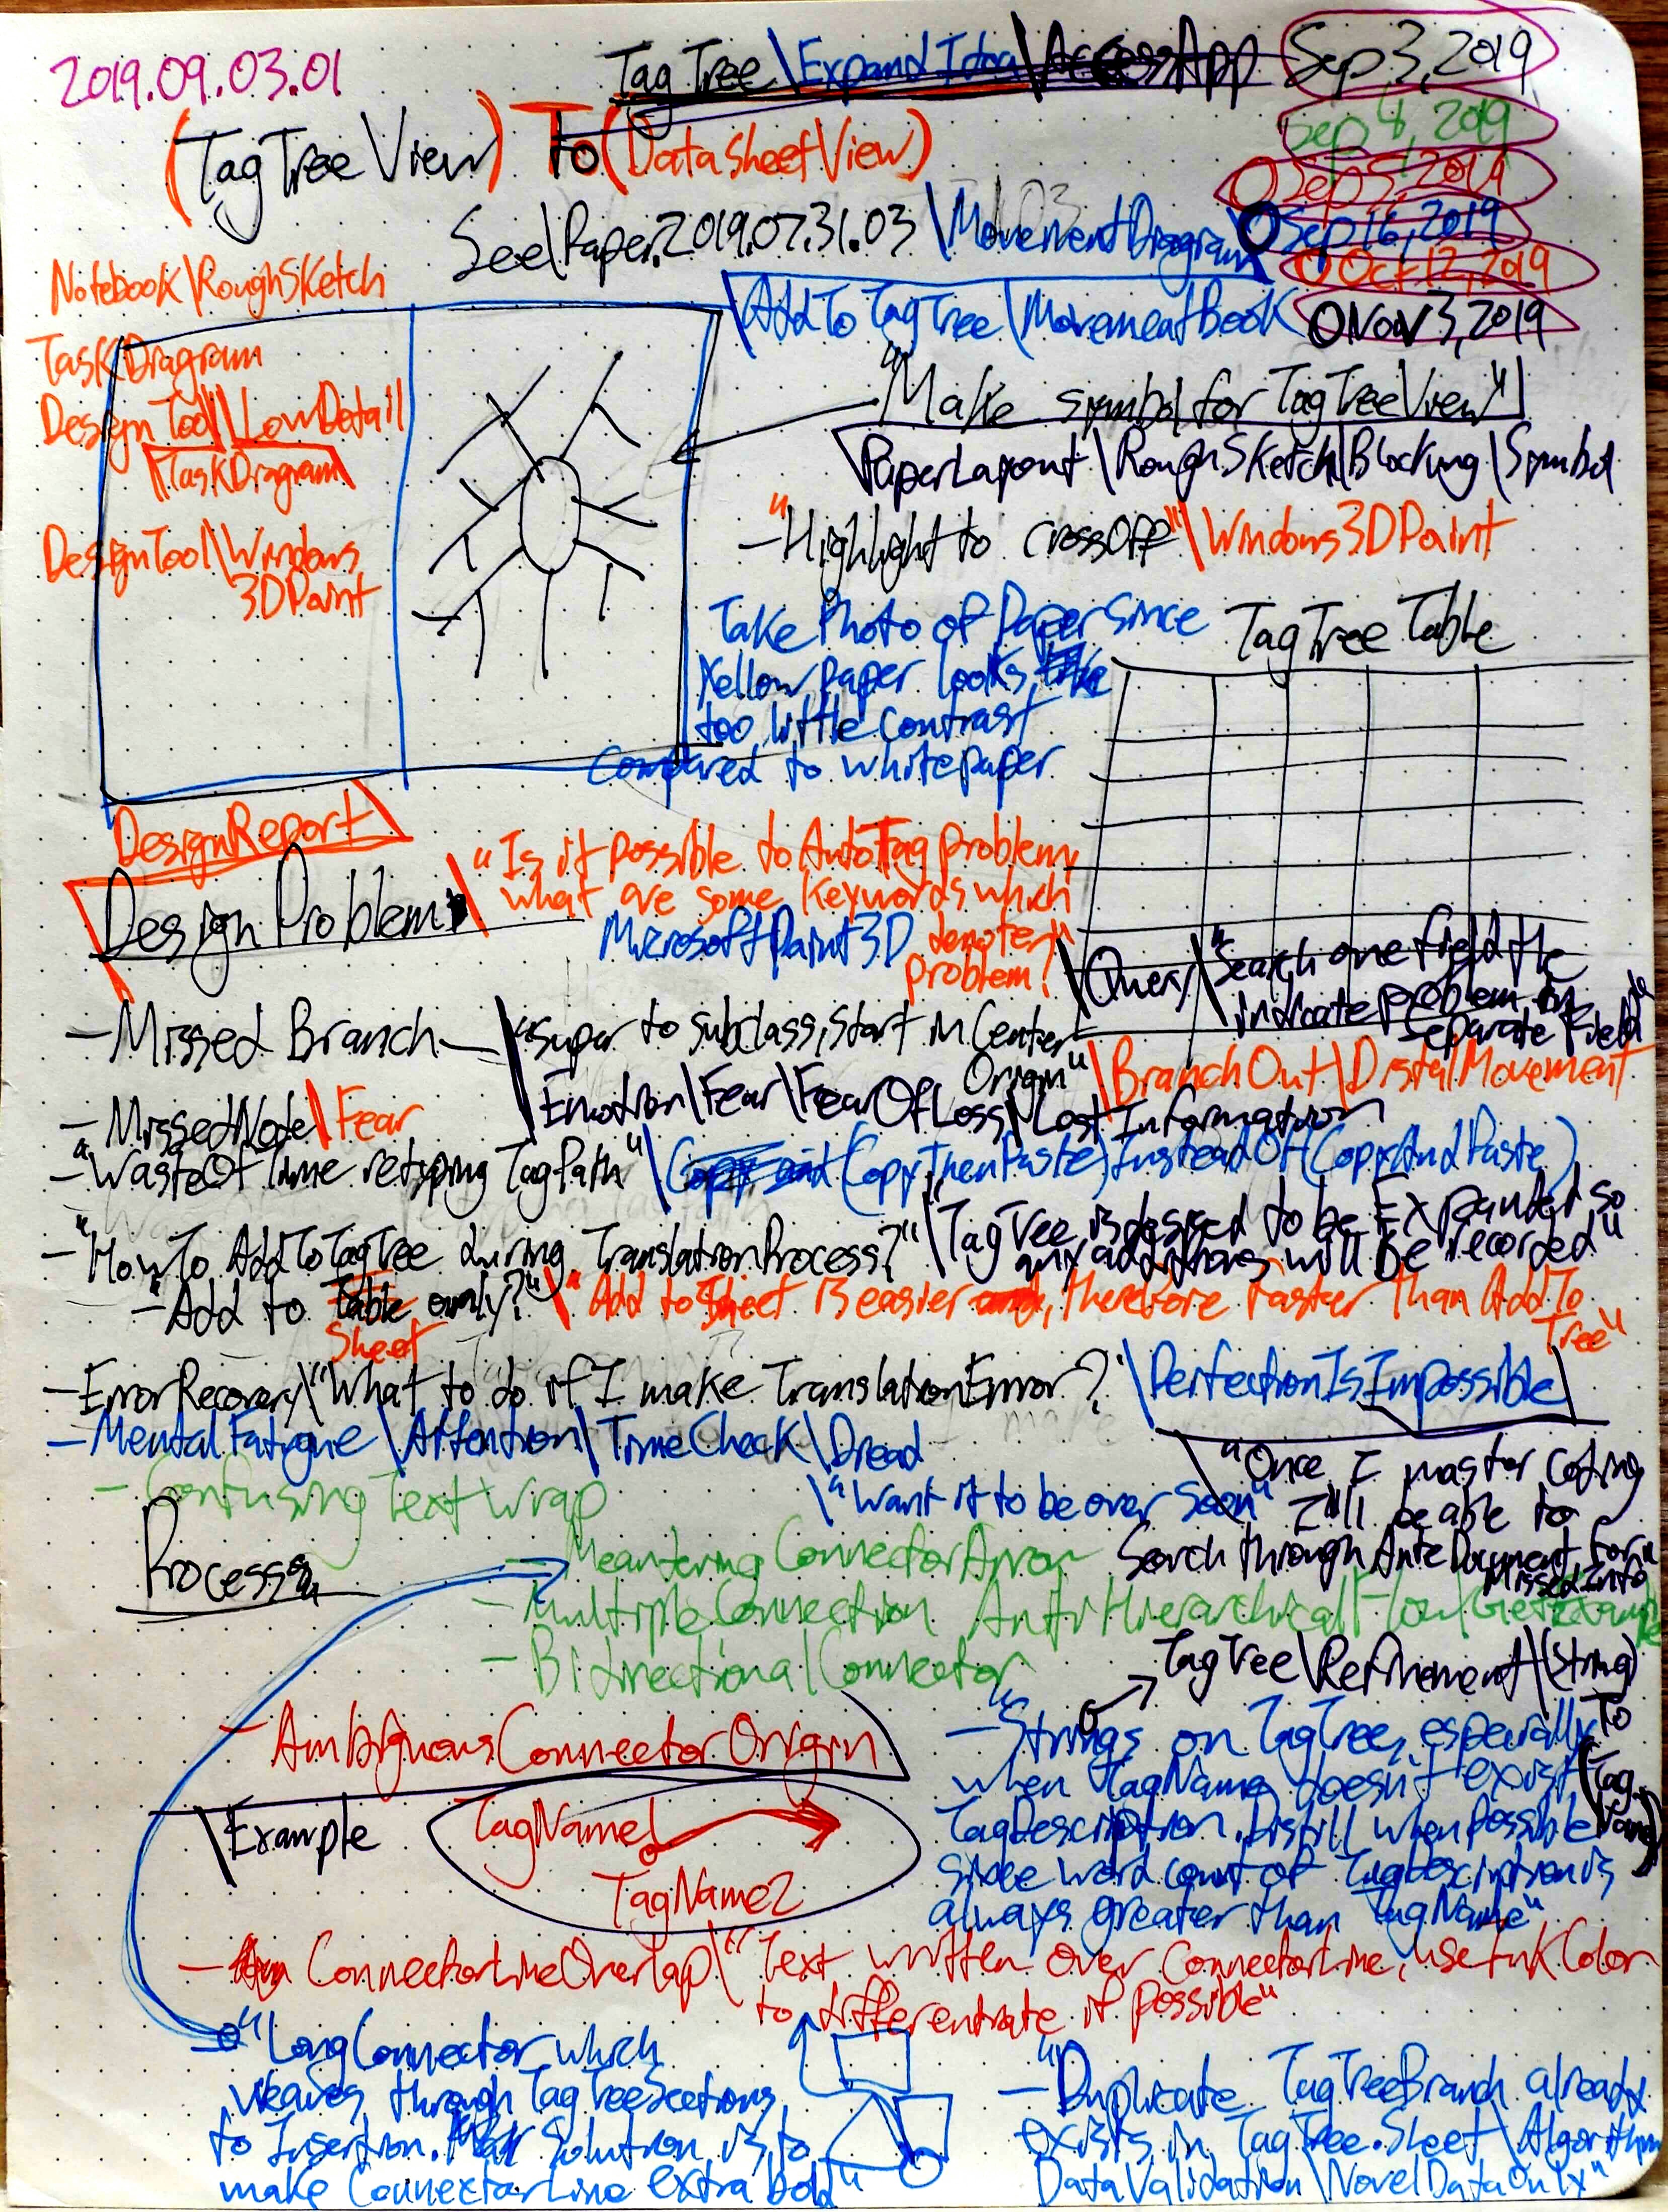 2019.09.03.01
TagTree\ExpandIdea\AccessApp
Sep 3, 2019
Sep 4, 2019
Sep 5, 2019
Sep 16, 2019
Oct 12, 2019
Nov 3, 2019
(TagTreeView) To (DatasheetView)
See\Paper.2019.07.31.03\MovementDiagram
\AddToTagTree\MovementBook
Notebook\RoughSketch
TaskDiagram
DesignTool\LowDetail
\TaskDiagram
DesignTool\Windows
3DPaint
"Make symbol for TagTreeView"
\PaperLayout\RoughSketch\Blocking\Symbol
-"Highlight to crossOff"\Windows3DPaint
Take Photo of Paper Since
Yellow paper looks
too little contrast
Compared to whitepaper
TagTree Table
DesignReport
DesignProblem
\"Is it possible to AutoTag problem,
what are some keywords which
denotes
problem?"
MicrosoftPaint3D
\Query\"Search one field the
indicate problem in
separate field"
-Missed Branch
\"super to subclass, start in Center
Origin"\BranchOut\DistalMovement
-MissedNode\Fear
\Emotion\Fear\FearOfLoss\LostInformation
-"WasteOfTime retyping TagPath"\(CopyThenPaste)InsteadOf(CopyAndPaste)
-"HowTo AddToTagTree during TranslationProcess?"\"TagTree is designed to be Expanded so
any additions will be recorded"
-"Add to Sheet only?"\"Add to Sheet is easier, therefore faster than AddTo
Tree"
-ErrorRecovery\"What to do if I make TranslationError?"\PerfectionIsImpossible
-MentalFatigue\Attention\TimeCheck\Dread
\"Want it to be over soon"
\"Once I master coding
I'll be able to
Search through AnteDocument for
MissedInfo"
-ConfusingTextWrap
Process
-MeanderingConnectorArrow
-MultipleConnection AntiHierarchicalFlow\GetExample
-BidirectionalConnector
TagTree\Refinement\(String)
To
(Tag
Name)
-AmbiguousConnectorOrigin
\Example
TagName1
TagName2
-"Strings on TagTree, especially
when TagName doesn't exist
TagDescription. Distill when possible
since word count of TagDescription is
always greater than TagName"
-ConnectorLineOverlap\"Text written over ConnectorLine, use InkColor
to differentiate if possible"
"LongConnector which
weaves through TagTreeSections
to Insertion. Solution is to
make ConnectorLine extra bold"
-"Duplicate TagTreeBranch already
exists in TagTree.Sheet\Algorithm
DataValidation\NovelDataOnly"